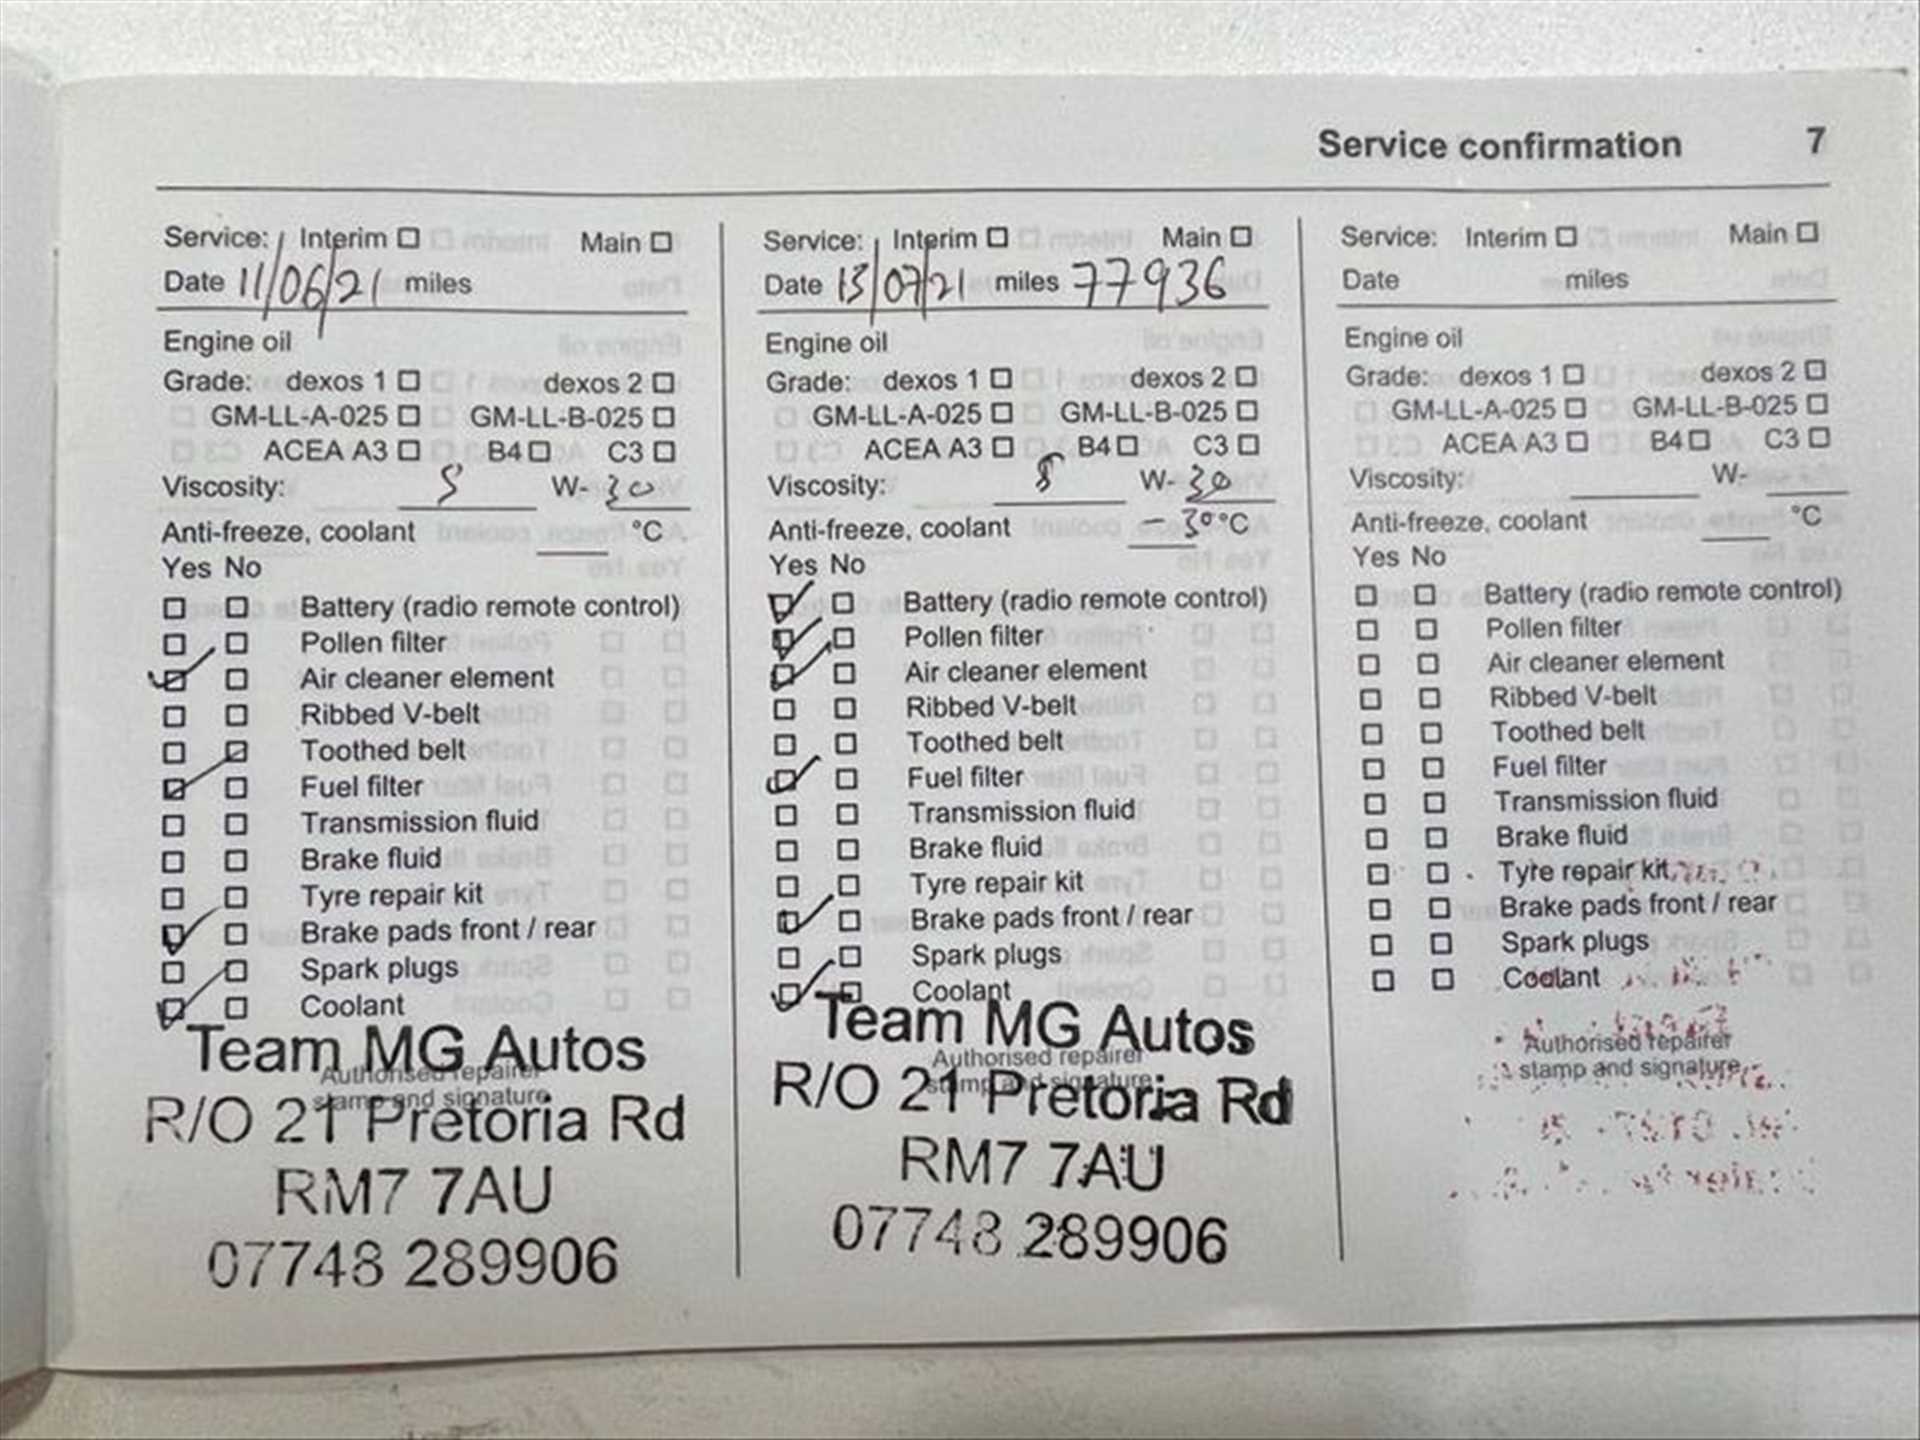 Service confirmation 7
Service: Interim ☐ Main ☐
Date 11/06/21 miles
Engine oil
Grade: dexos 1 ☐ dexos 2 ☐
GM-LL-A-025 ☐ GM-LL-B-025 ☐
ACEA A3 ☐ B4 ☐ C3 ☐
Viscosity: 5 W- 30
Anti-freeze, coolant °C
Yes No
Battery (radio remote control)
Pollen filter
Air cleaner element
Ribbed V-belt
Toothed belt
Fuel filter
Transmission fluid
Brake fluid
Tyre repair kit
Brake pads front / rear
Spark plugs
Coolant
Team MG Autos
Authorised repairer
stamp and signature
R/O 21 Pretoria Rd
RM7 7AU
07748 289906
Service: Interim ☐ Main ☐
Date 13/07/21 miles 77936
Engine oil
Grade: dexos 1 ☐ dexos 2 ☐
GM-LL-A-025 ☐ GM-LL-B-025 ☐
ACEA A3 ☐ B4 ☐ C3 ☐
Viscosity: 5 W- 30
Anti-freeze, coolant -30°C
Yes No
Battery (radio remote control)
Pollen filter
Air cleaner element
Ribbed V-belt
Toothed belt
Fuel filter
Transmission fluid
Brake fluid
Tyre repair kit
Brake pads front / rear
Spark plugs
Coolant
Team MG Autos
Authorised repairer
stamp and signature
R/O 21 Pretoria Rd
RM7 7AU
07748 289906
Service: Interim ☐ Main ☐
Date miles
Engine oil
Grade: dexos 1 ☐ dexos 2 ☐
GM-LL-A-025 ☐ GM-LL-B-025 ☐
ACEA A3 ☐ B4 ☐ C3 ☐
Viscosity: W-
Anti-freeze, coolant °C
Yes No
Battery (radio remote control)
Pollen filter
Air cleaner element
Ribbed V-belt
Toothed belt
Fuel filter
Transmission fluid
Brake fluid
Tyre repair kit
Brake pads front / rear
Spark plugs
Coolant
Authorised repairer
stamp and signature